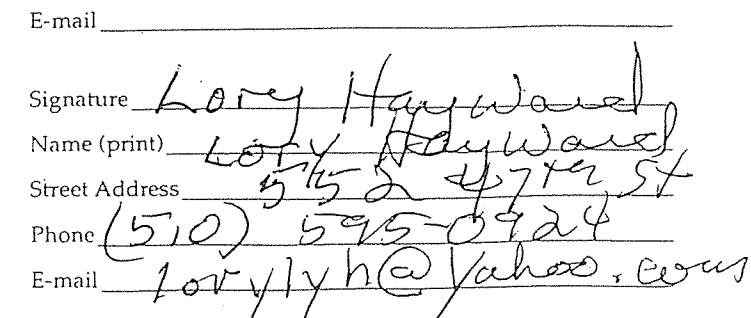 E-mail
Signature Lory Hayward
Name (print) Lory Hayward
Street Address 552 47th St
Phone (510) 595-0924
E-mail lorylyh@yahoo.com